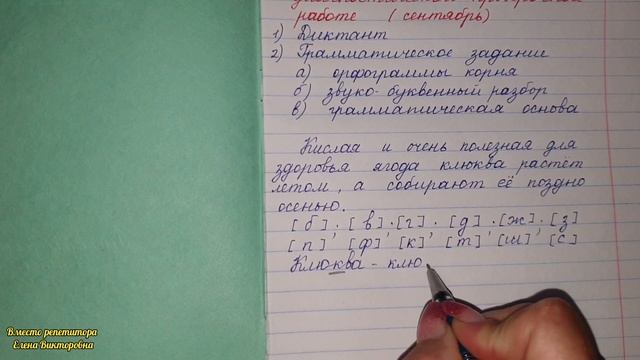 работе (сентябрь)
1) Диктант
2) Грамматическое задание
а) орфограммы корня
б) звуко-буквенный разбор
в) грамматическая основа
Кислая и очень полезная для
здоровья ягода клюква растёт
летом, а собирают её поздно
осенью.
[б], [в], [г], [д], [ж], [з]
[п] [ф] [к] [т] [ш] [с]
Клюква - клю
Вместо репетитора
Елена Викторовна